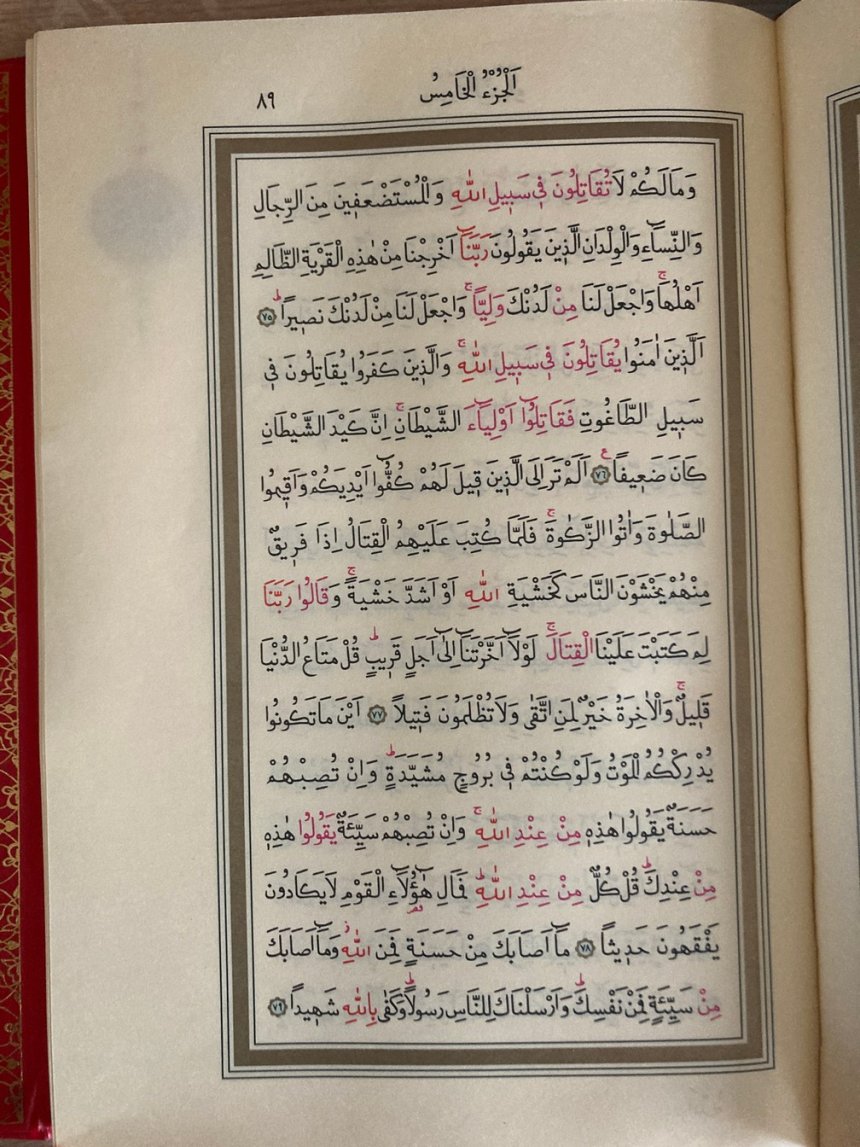 اَلْجُزْءُ الْخَامِسُ
٨٩
وَمَالَكُمْ لَا تُقَاتِلُونَ فٖى سَبٖيلِ اللّٰهِ وَالْمُسْتَضْعَفٖينَ مِنَ الرِّجَالِ
وَالنِّسَٓاءِ وَالْوِلْدَانِ الَّذٖينَ يَقُولُونَ رَبَّنَٓا اَخْرِجْنَا مِنْ هٰذِهِ الْقَرْيَةِ الظَّالِمِ
اَهْلُهَاۚ وَاجْعَلْ لَنَا مِنْ لَدُنْكَ وَلِيًّاۚ وَاجْعَلْ لَنَا مِنْ لَدُنْكَ نَصٖيرًاۜ ﴿٧٥﴾
اَلَّذٖينَ اٰمَنُوا يُقَاتِلُونَ فٖى سَبٖيلِ اللّٰهِۚ وَالَّذٖينَ كَفَرُوا يُقَاتِلُونَ فٖى
سَبٖيلِ الطَّاغُوتِ فَقَاتِلُٓوا اَوْلِيَٓاءَ الشَّيْطَانِۚ اِنَّ كَيْدَ الشَّيْطَانِ
كَانَ ضَعٖيفًاࣖ ﴿٧٦﴾ اَلَمْ تَرَ اِلَى الَّذٖينَ قٖيلَ لَهُمْ كُفُّٓوا اَيْدِيَكُمْ وَاَقٖيمُوا
الصَّلٰوةَ وَاٰتُوا الزَّكٰوةَۚ فَلَمَّا كُتِبَ عَلَيْهِمُ الْقِتَالُ اِذَا فَرٖيقٌ
مِنْهُمْ يَخْشَوْنَ النَّاسَ كَخَشْيَةِ اللّٰهِ اَوْ اَشَدَّ خَشْيَةًۚ وَقَالُوا رَبَّنَا
لِمَ كَتَبْتَ عَلَيْنَا الْقِتَالَۚ لَوْلَٓا اَخَّرْتَنَٓا اِلٰٓى اَجَلٍ قَرٖيبٍۜ قُلْ مَتَاعُ الدُّنْيَا
قَلٖيلٌۚ وَالْاٰخِرَةُ خَيْرٌ لِمَنِ اتَّقٰى وَلَا تُظْلَمُونَ فَتٖيلًا ﴿٧٧﴾ اَيْنَ مَا تَكُونُوا
يُدْرِكْكُمُ الْمَوْتُ وَلَوْ كُنْتُمْ فٖى بُرُوجٍ مُشَيَّدَةٍۜ وَاِنْ تُصِبْهُمْ
حَسَنَةٌ يَقُولُوا هٰذِهٖ مِنْ عِنْدِ اللّٰهِۚ وَاِنْ تُصِبْهُمْ سَيِّئَةٌ يَقُولُوا هٰذِهٖ
مِنْ عِنْدِكَۜ قُلْ كُلٌّ مِنْ عِنْدِ اللّٰهِۜ فَمَالِ هٰٓؤُ۬لَٓاءِ الْقَوْمِ لَا يَكَادُونَ
يَفْقَهُونَ حَدٖيثًا ﴿٧٨﴾ مَٓا اَصَابَكَ مِنْ حَسَنَةٍ فَمِنَ اللّٰهِؗ وَمَٓا اَصَابَكَ
مِنْ سَيِّئَةٍ فَمِنْ نَفْسِكَۜ وَاَرْسَلْنَاكَ لِلنَّاسِ رَسُولًاۜ وَكَفٰى بِاللّٰهِ شَهٖيدًا ﴿٧٩﴾